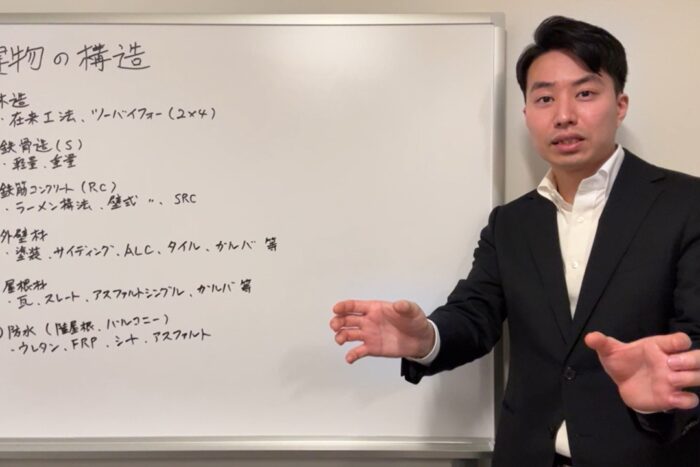 建物の構造
木造
・在来工法、ツーバイフォー(2×4)
鉄骨造(S)
・軽量、重量
鉄筋コンクリート(RC)
・ラーメン構法、壁式〃、SRC
外壁材
・塗装、サイディング、ALC、タイル、ガルバ 等
屋根材
・瓦、スレート、アスファルトシングル、ガルバ 等
)防水(陸屋根、バルコニー)
・ウレタン、FRP、シート、アスファルト